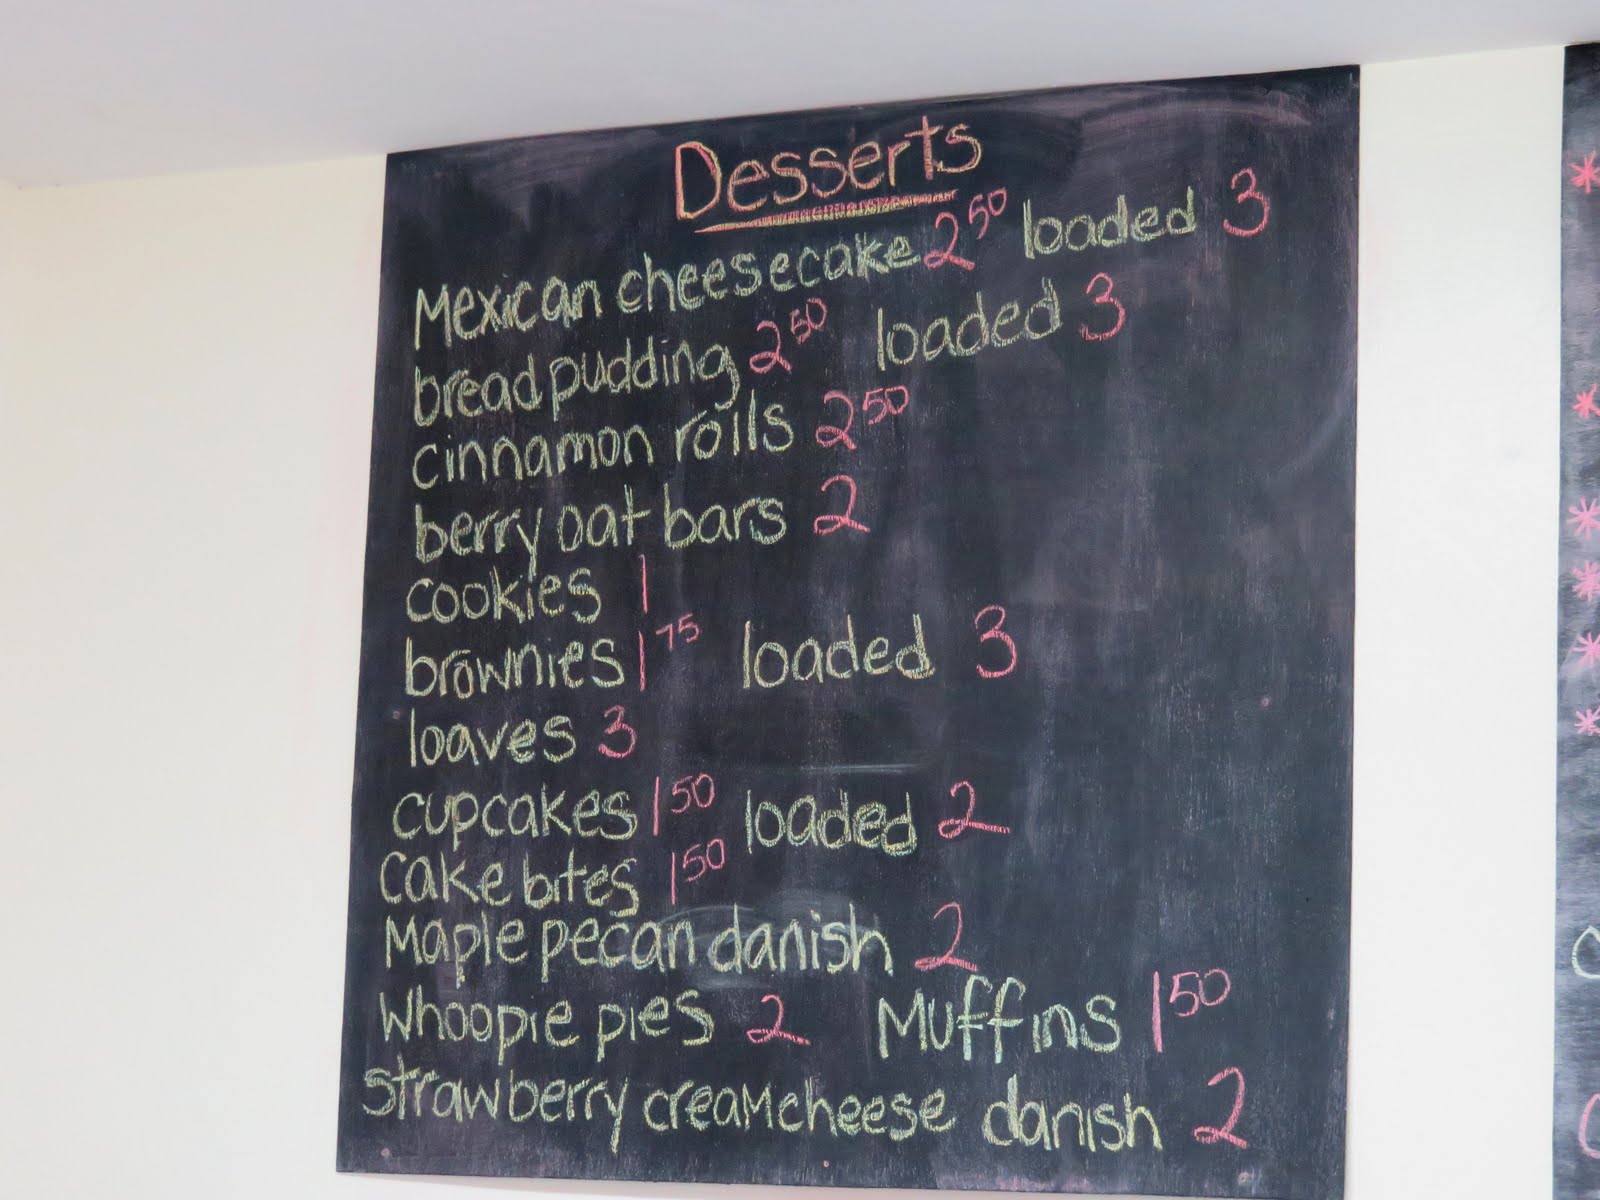 Desserts
Mexican cheesecake 2 50 loaded 3
bread pudding 2 50 loaded 3
cinnamon rolls 2 50
berry oat bars 2
cookies 1
brownies 1 75 loaded 3
loaves 3
cupcakes 1 50 loaded 2
cake bites 1 50
Maple pecan danish 2
whoopie pies 2 Muffins 1 50
strawberry creamcheese danish 2